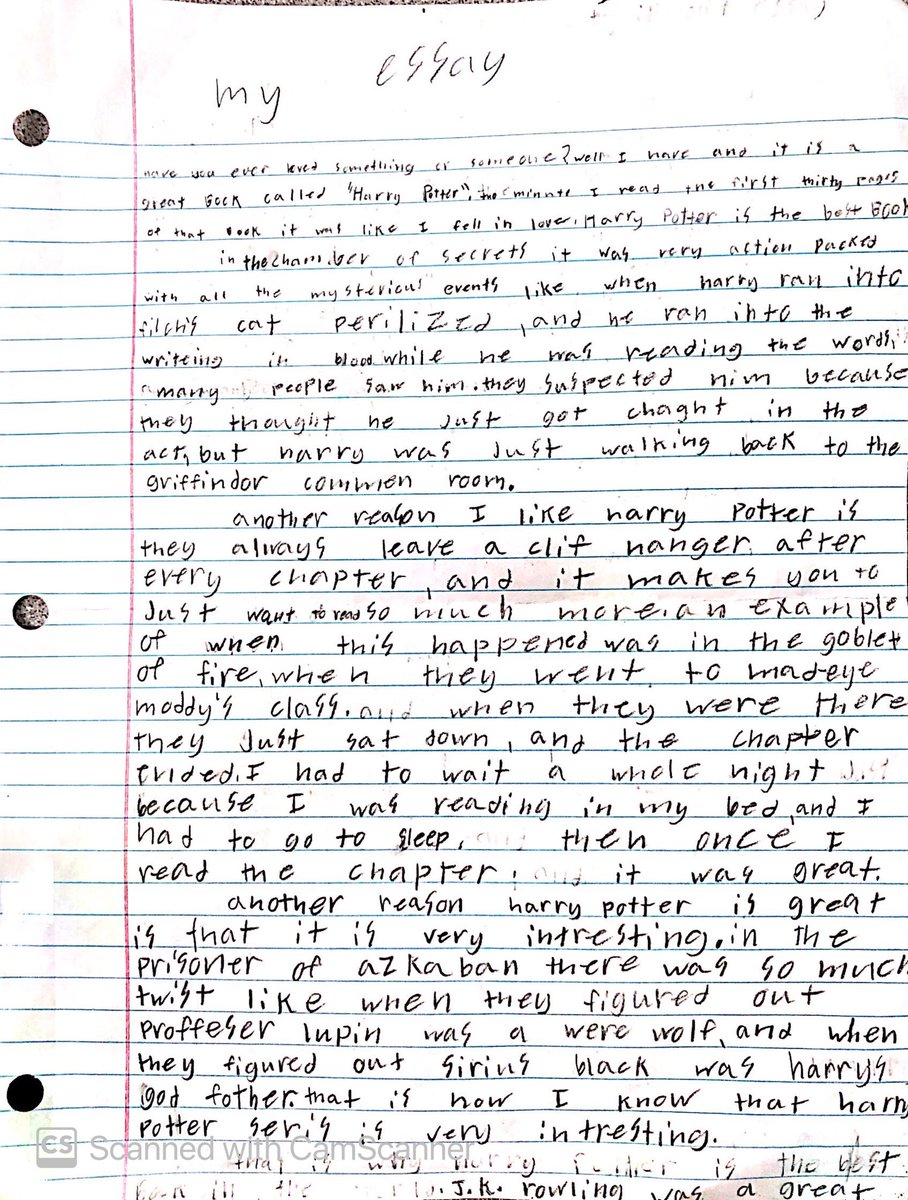 my essay
have you ever loved something or someone? well I have and it is a
great book called "Harry Potter", the minute I read the first thirty pages
of that book it was like I fell in love. Harry Potter is the best Book
in the chamber of secrets it was very action packed
with all the mysterious events like when harry ran into
filch's cat perilized, and he ran into the
writeing in blood while he was reading the words,
many people saw him. they suspected him because
they thought he Just got chaght in the
act, but harry was Just walking back to the
griffindor common room.
another reason I like harry potter is
they always leave a clif hanger after
every chapter, and it makes you to
Just want to read so much more. an example
of when this happened was in the goblet
of fire, when they went to madeye
moddy's class. and when they were there
they Just sat down, and the chapter
ended. I had to wait a whole night
because I was reading in my bed, and I
had to go to sleep. then once I
read the chapter, and it was great.
another reason harry potter is great
is that it is very intresting. in the
prisoner of azkaban there was so much
twist like when they figured out
proffeser lupin was a were wolf, and when
they figured out sirius black was harrys
god fother. that is how I know that harry
potter seris is very intresting.
that is why harry Potter is the best
book in the J.K. rowling was a great
CS Scanned with CamScanner